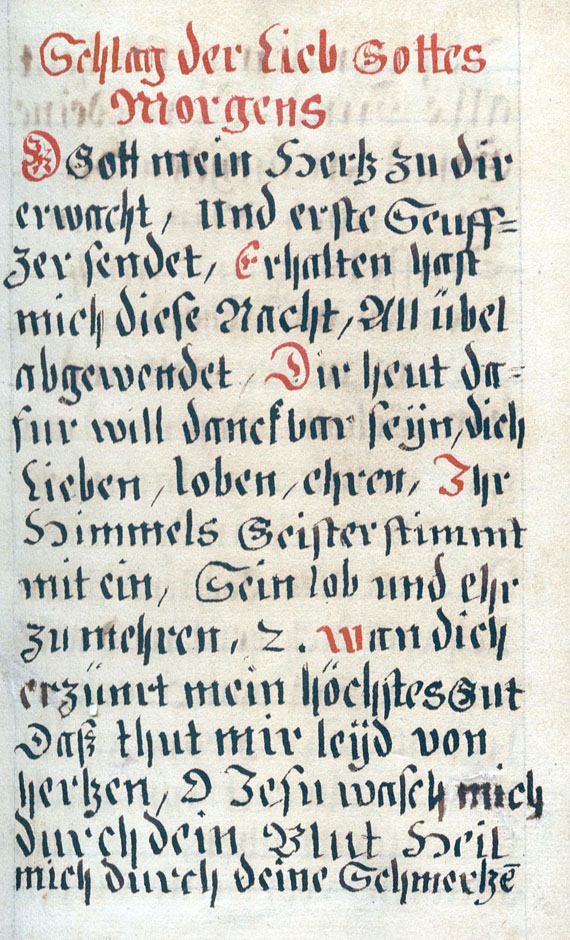 Schlag der Lieb Gottes
Morgens
O Gott mein Hertz zu dir
erwacht, Und erste Seuff=
zer sendet, Erhalten hast
mich diese Nacht, All übel
abgewendet, Dir heut da=
fur will danckbar seÿn, dich
Lieben, loben, ehren, Ihr
Himmels Geister stimmt
mit ein, Sein lob und Ehr
zu mehren, 2. Wan dich
erzünrt mein höchstes Gut
Daß thut mir leÿd von
hertzen, O Jesu wasch mich
durch dein Blut Heil
mich durch deine Schmertzē